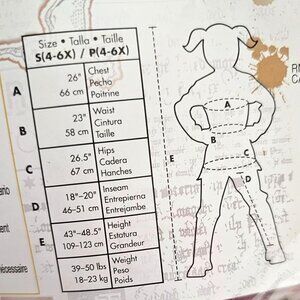 Size • Talla • Taille
S(4-6X) / P(4-6X)
A
26" Chest
66 cm Pecho
Poitrine
B
23" Waist
58 cm Cintura
Taille
C
26.5" Hips
67 cm Cadera
Hanches
D
18"-20" Inseam
46-51 cm Entrepierna
Entrejambe
E
43"-48.5" Height
109-123 cm Estatura
Grandeur
39-50 lbs Weight
18-23 kg Peso
Poids
A
B
C
D
E